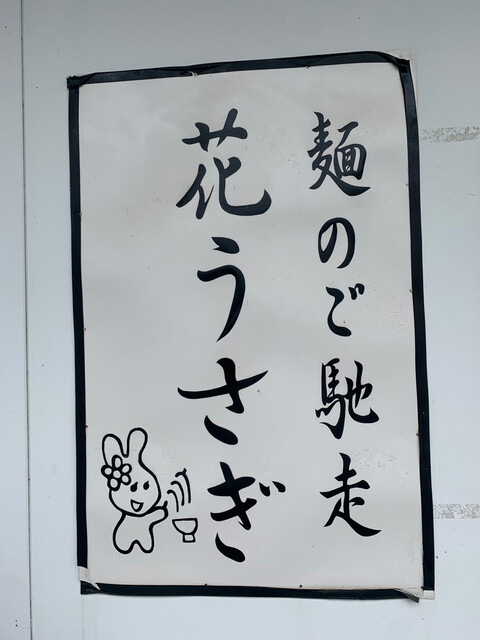 麺のご馳走
花うさぎ